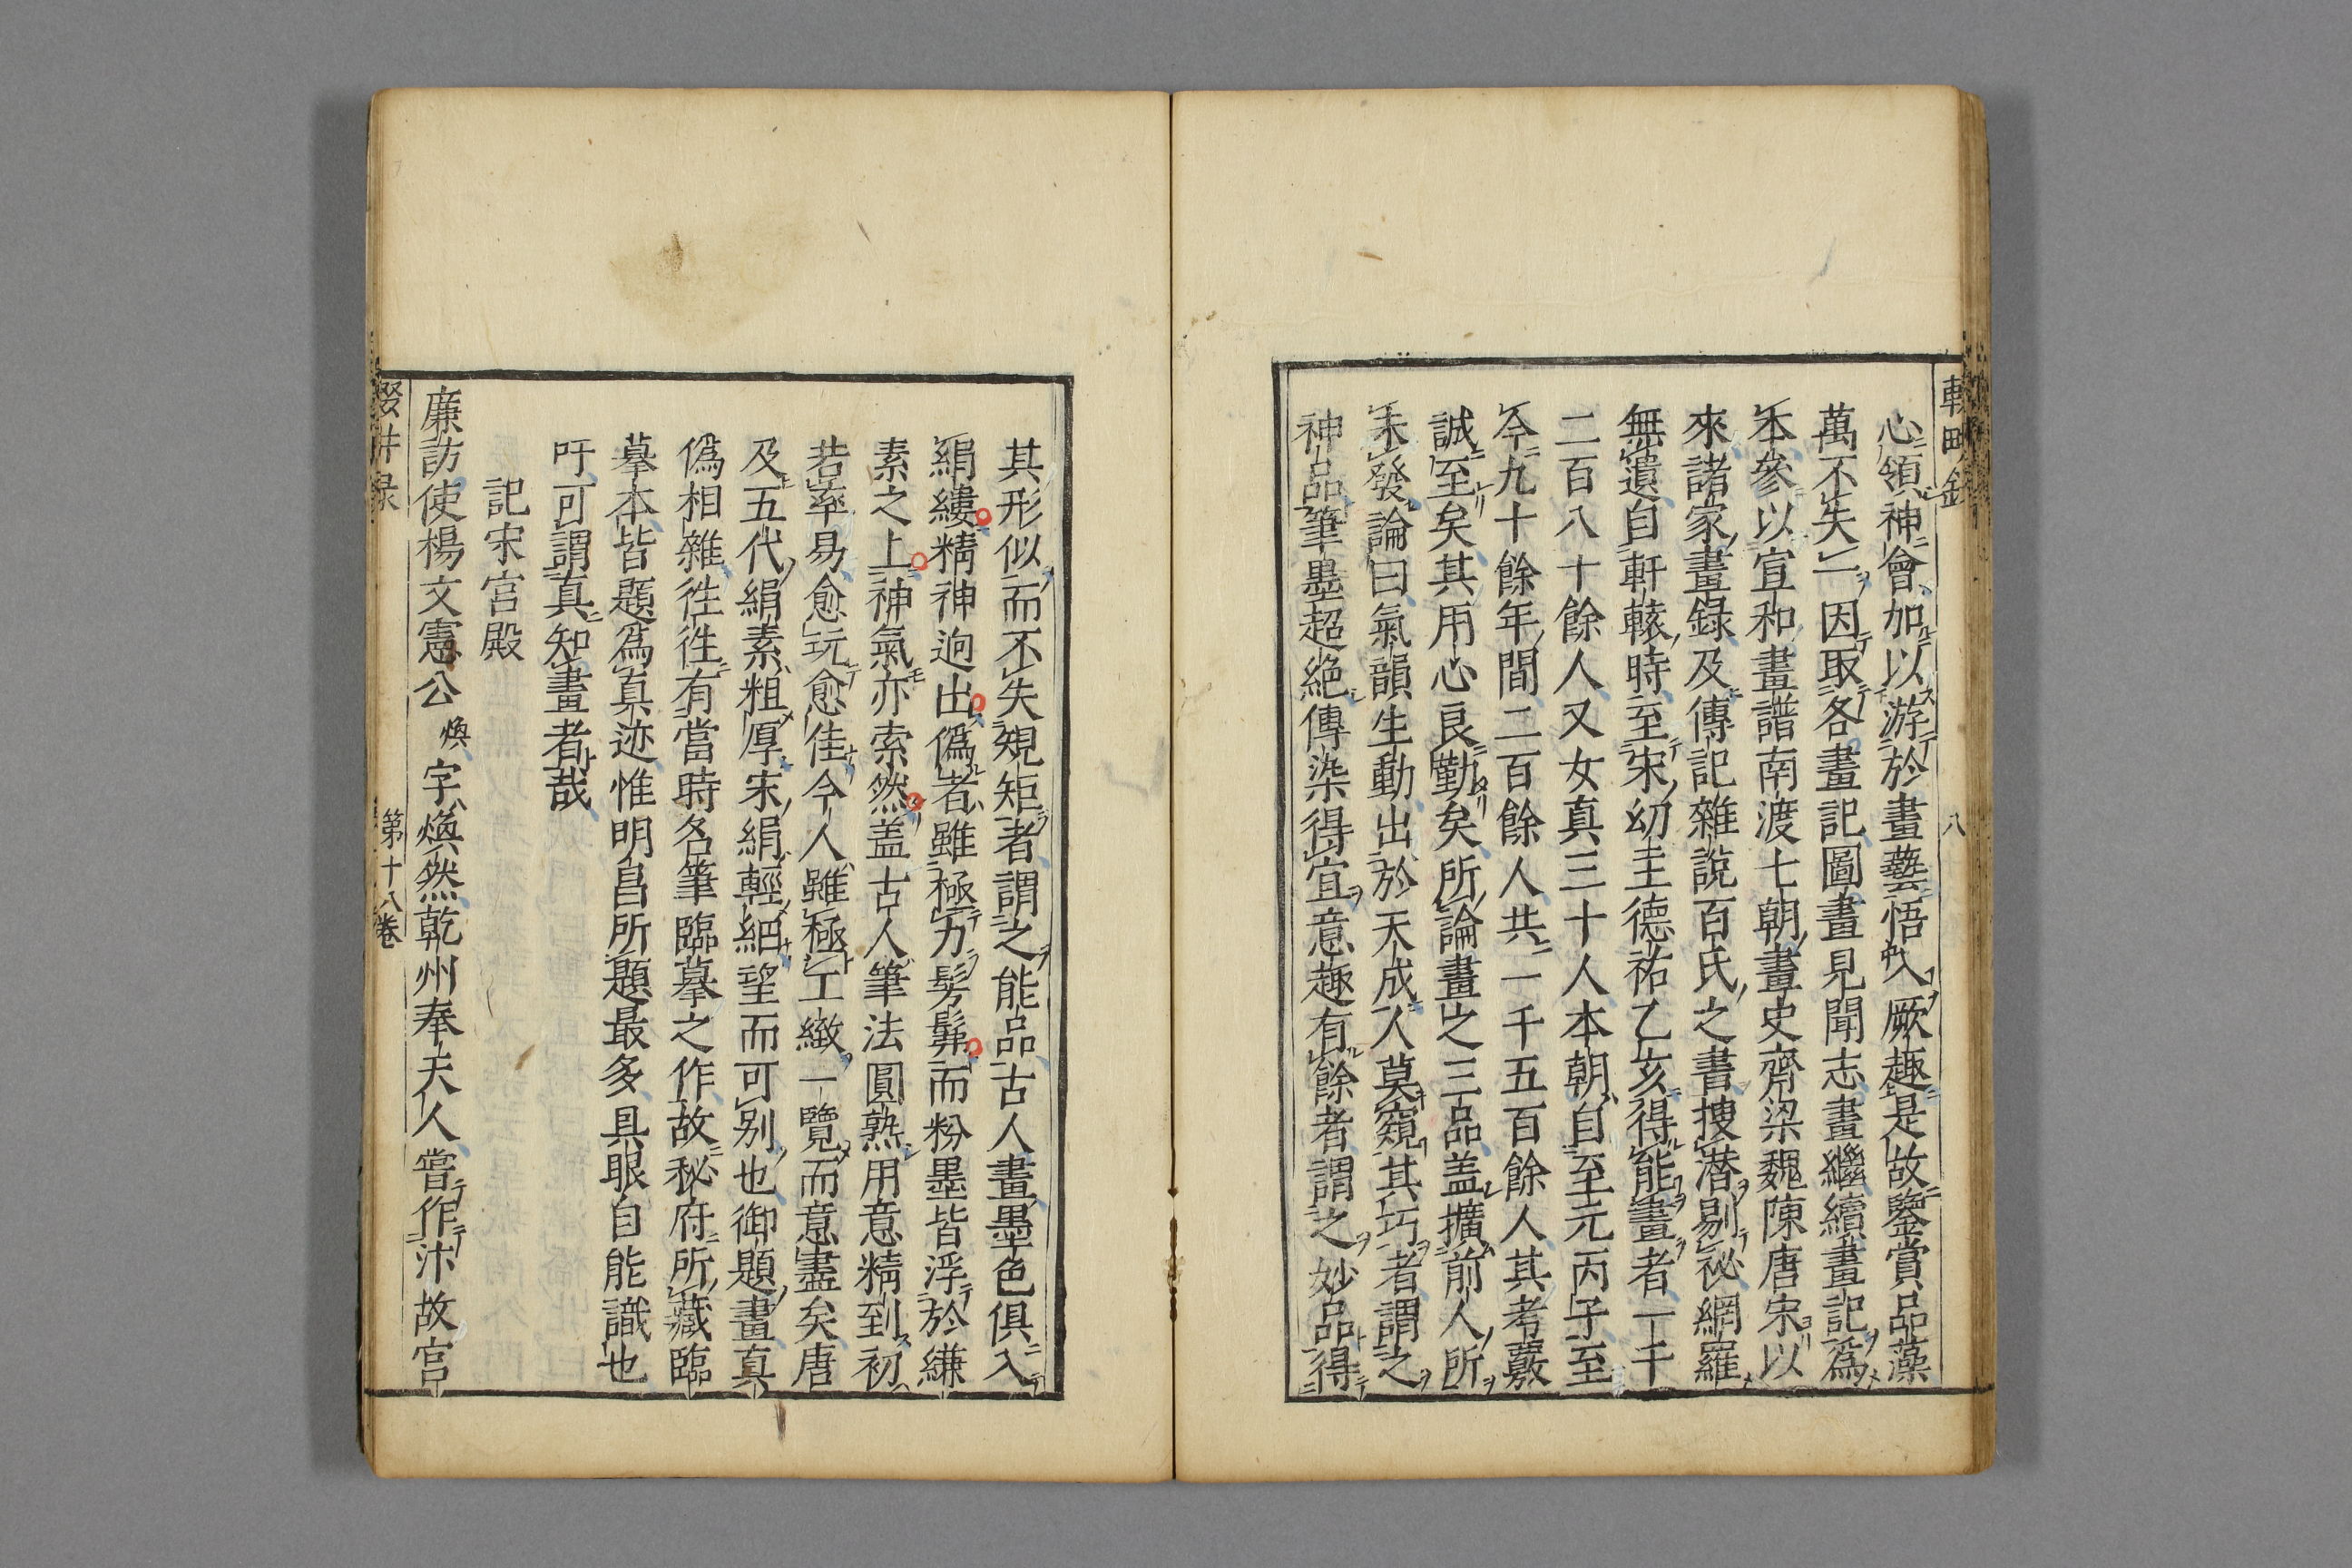 心領神會加以游於畫藝悟入厥趣是故鑒賞品藻
萬不失一因取各畫記圖畫見聞志畫繼續畫記爲
本參以宣和畫譜南渡七朝畫史齊梁魏陳唐宋以
來諸家畫錄及傳記雜說百氏之書搜潜剔祕網羅
無遺自軒轅時至宋幼主德祐乙亥得能畫者一千
二百八十餘人又女真三十人本朝自至元丙子至
今九十餘年間二百餘人共一千五百餘人其考覈
誠至矣其用心良勤矣所論畫之三品盖擴前人所
未發論曰氣韻生動出於天成人莫窺其巧者謂之
神品筆墨超絶傳染得宜意趣有餘者謂之妙品得
八
其形似而不失規矩者謂之能品古人畫墨色俱入
絹縷精神迥出偽者雖極力髣髴而粉墨皆浮於縑
素之上神氣亦索然盖古人筆法圓熟用意精到初
若率易愈玩愈佳今人雖極工緻一覽而意盡矣唐
及五代絹素粗厚宋絹輕細望而可别也御題畫真
偽相雜徃徃有當時名筆臨摹之作故秘府所藏臨
摹本皆題爲真迹惟明昌所題最多具眼自能識也
吁可謂真知畫者哉
記宋宮殿
廉訪使楊文憲公煥字煥然乾州奉天人嘗作汴故宮
第十八卷